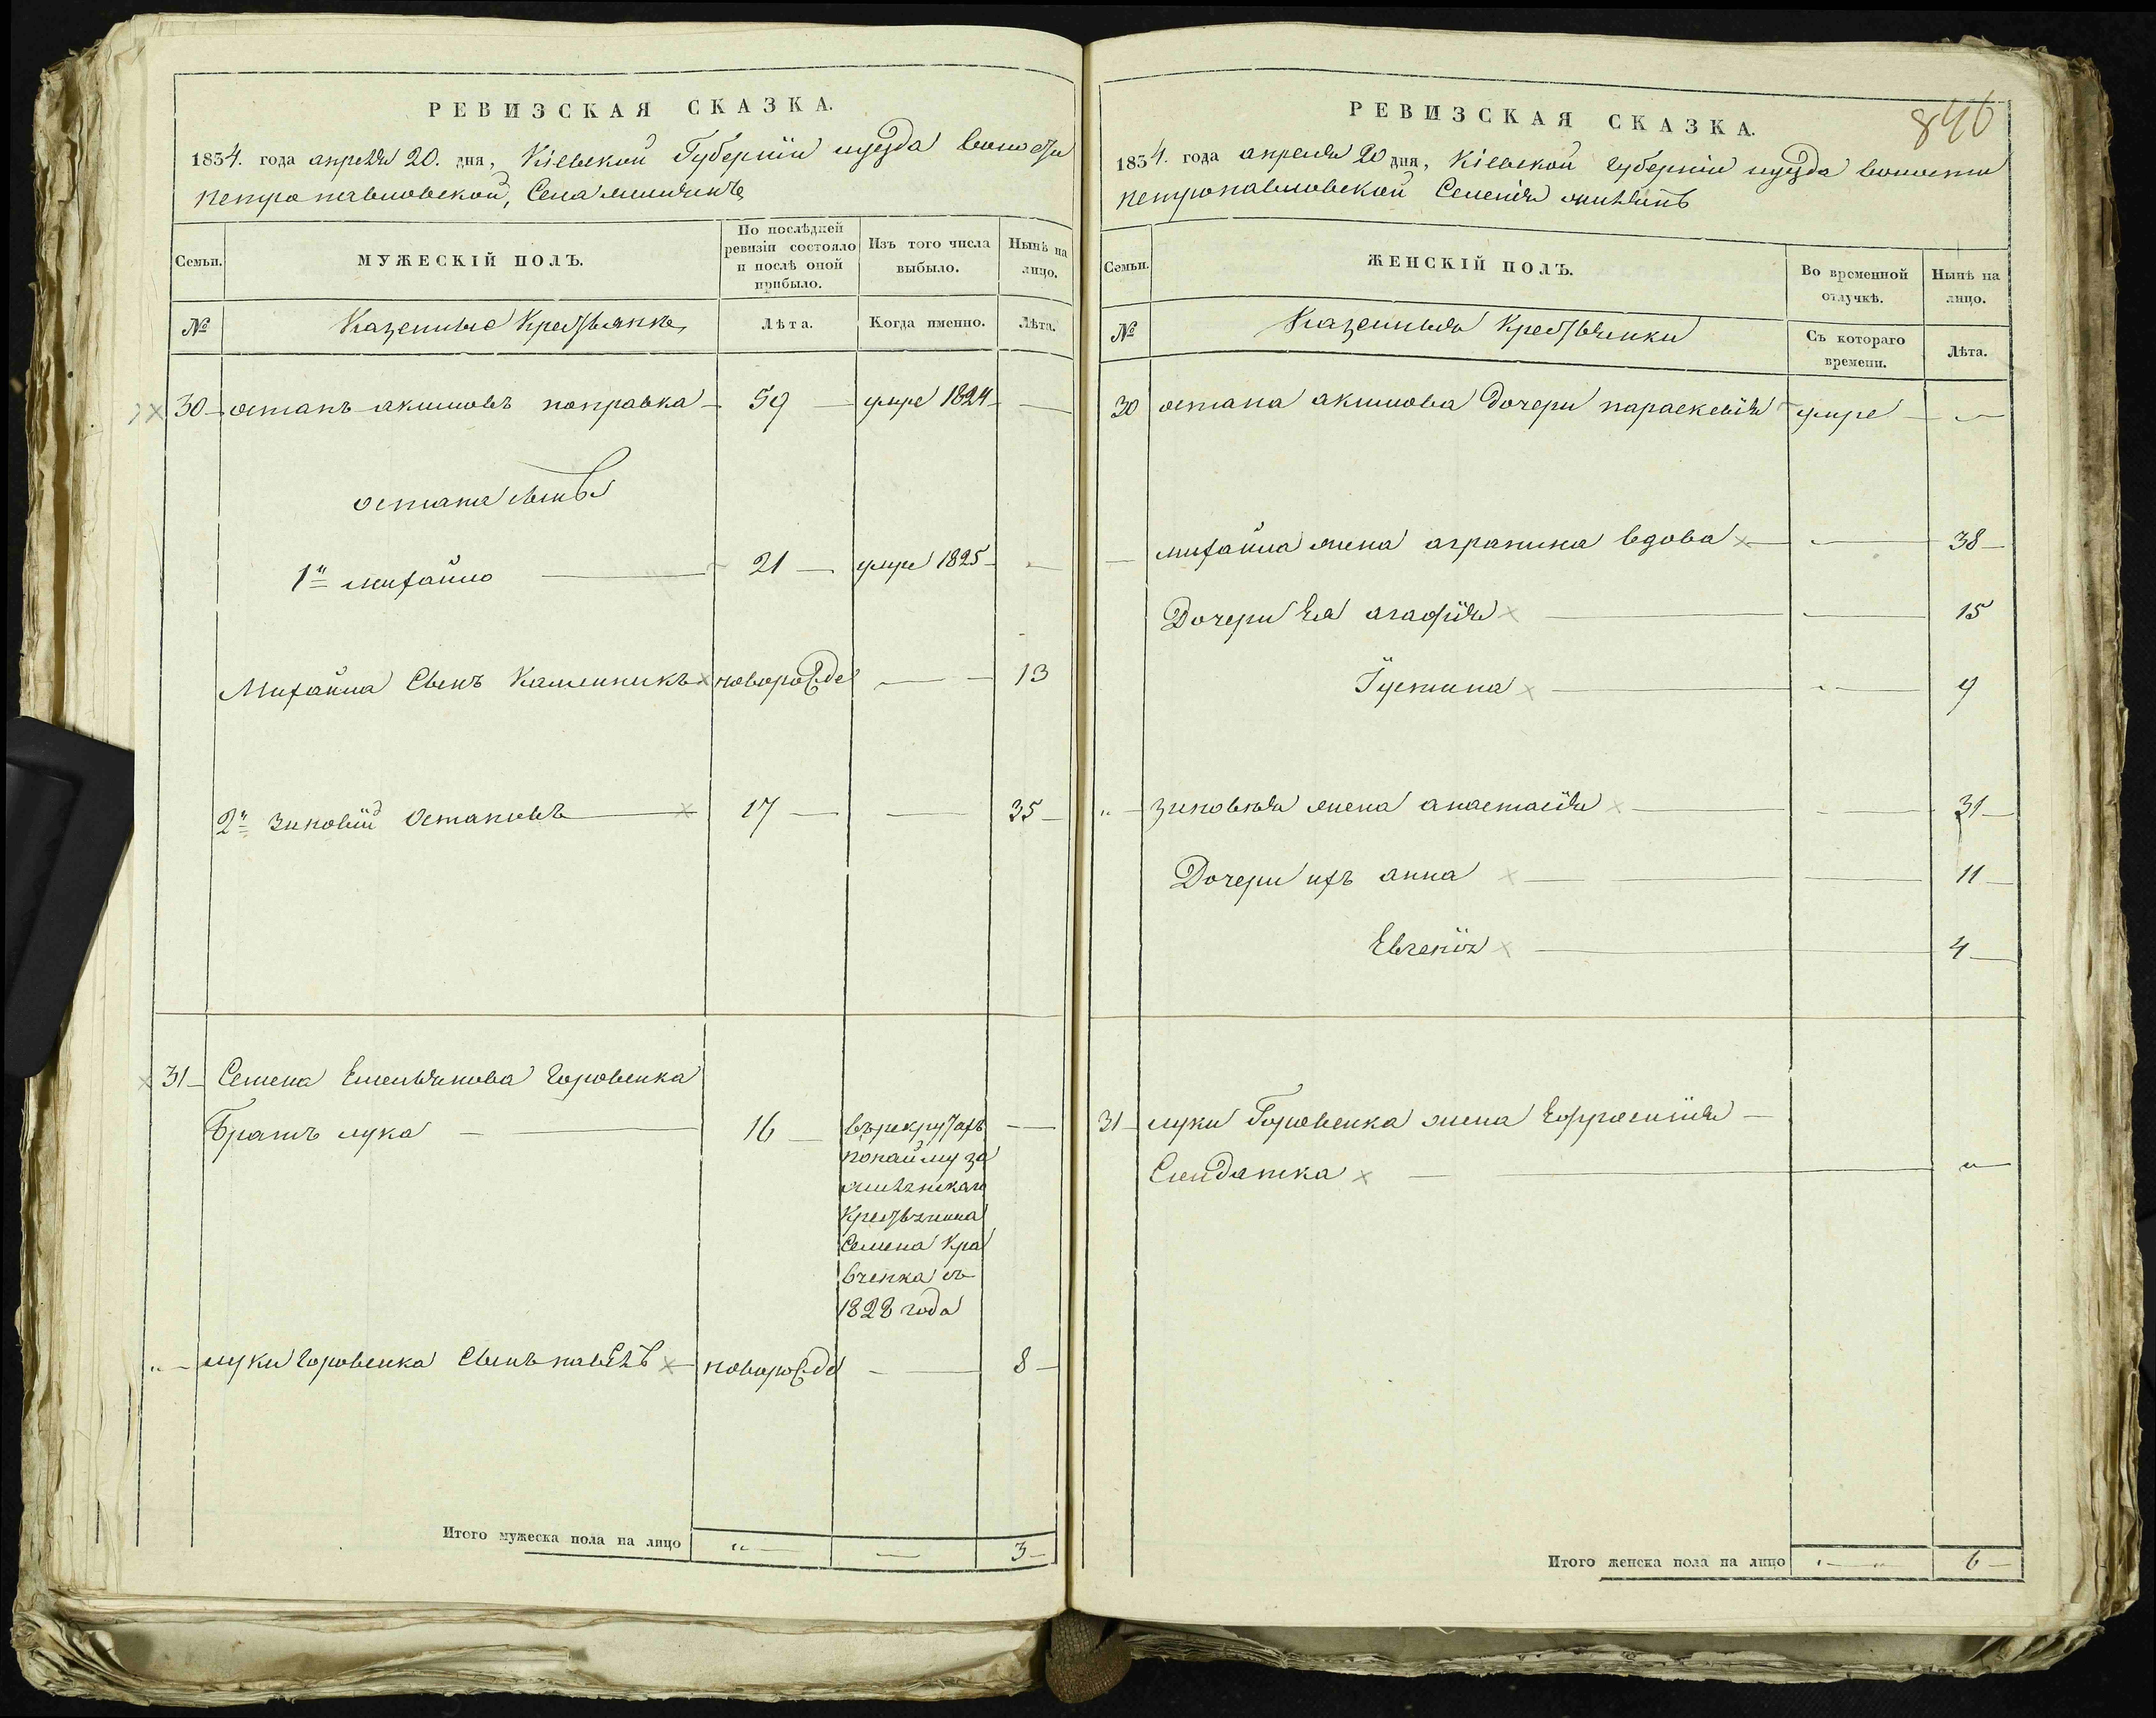 РЕВИЗСКАЯ СКАЗКА.
1834. года апреля 20. дня, Кіевской Губерніи уезда волости
петропавловской, Села
Семьи.
МУЖЕСКІЙ ПОЛЪ.
По послѣдней ревизіи состояло и послѣ оной прибыло.
Изъ того числа выбыло.
Нынѣ на лицо.
№
Казенные Крестьяне
Лѣта.
Когда именно.
Лѣта.
30 остапъ акимовъ поправка 59 умре 1824
остапа сынъ
1й михайло 21 умре 1825
Михайла Сынъ Калинникъ новорожде 13
2й зиновій Остаповъ 17 35
31 Семена Емельянова Горовенка
Братъ лука 16 въ рекрутахъ
понайму за
жилянскаго
Крестьянина
Семена Кра
вченка съ
1828 года
луки Горовенка Сынъ павелъ новорожде 8
Итого мужеска пола на лицо 3
846
РЕВИЗСКАЯ СКАЗКА.
1834. года апреля 20 дня, Кіевской Губерніи уезда волости
петропавловской Селенія жилянъ
Семьи.
ЖЕНСКІЙ ПОЛЪ.
Во временной отлучкѣ.
Нынѣ на лицо.
№
Казенныя Крестьянки
Съ котораго времени.
Лѣта.
30 остапа акимова Дочери параскевія умре
михайла жена аграпина вдова 38
Дочери Ея агафія 15
Іустина 9
зиновія жена анастасія 31
Дочери ихъ анна 11
Евгенія 4
31 луки Горовенка жена Ефросинія
Солдатка
Итого женска пола на лицо 6